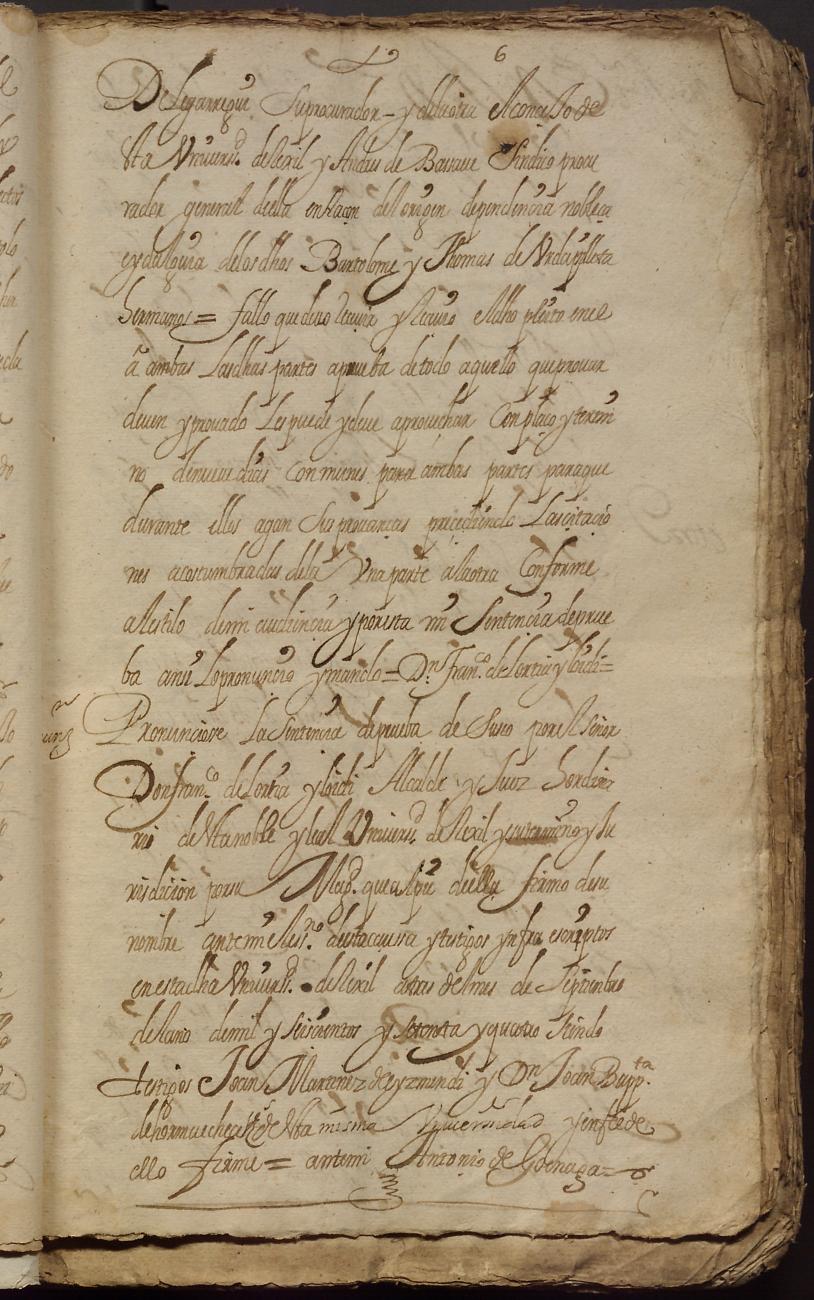 6
De legarregui Su procurador = y de la otra el concejo de
sta Vniuersd. de Rexil y Andres de Bassaue Sindico procu
rador general della en Raçon del origen dependencia nobleça
e ydalguia de los dhos Bartolome y Thomas de Vrdapilleta
hermanos = fallo que deuo Reciuir y Reciuo el dho pleito en el
a ambas Las dhas partes a prueba de todo aquello que prouar
deuen y prouado Les puede y deue aprouechar Con plaço y termi
no de nueue dias Comunes para ambas partes para que
durante ellos agan Sus prouanças precediendo Las citacio
nes acostumbradas de la Vna parte a la otra Conforme
al estilo de mi audiencia y por esta mi Sentencia de prue
ba ansi Lo pronuncio y mando = Dn. Franco. de Lertia y loidi =
Pronunciose La Sentencia de prueba de Suso por el Señor
Don franco. de Lertia y loidi Alcalde y Juez hordina
rio de sta noble y leal Vniuersd. de Rexil y su termino y Ju
risdicion por su Magd. que aqui della firmo de su
nombre ante mi el essno. de sta causa y testigos ynfra escriptos
en esta dha Vniuersd. de Rexil a tres del mes de Septiembre
del ano de mil y Seiscientos y Setenta y quatro Siendo
testigos Joan Martinez de yzmendi y Dn Joan Bappta.
de hormaechea de sta misma Vniuersidad y en fee de
ello firme = ante mi Antonio de Goenaga =